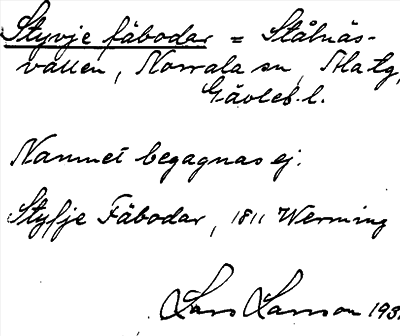 Styvje fäbodar = Stålnäs-
vallen, Norrala sn, Ala tg,
Gävleb. l.
Namnet begagnas ej.
Styfje Fäbodar, 1811 Werming
Lars Larsson 193